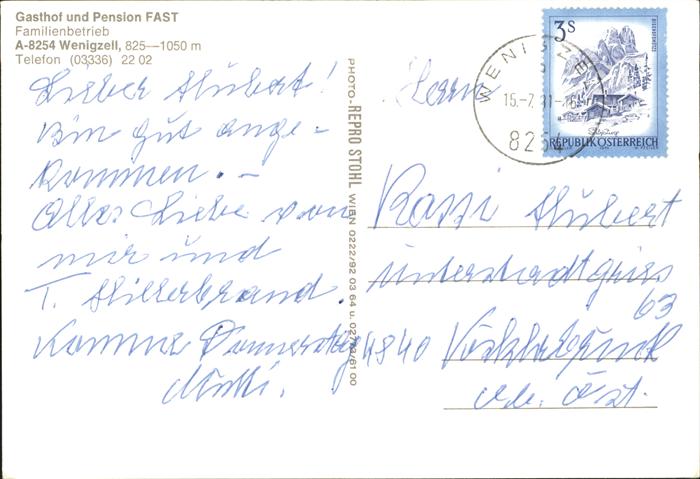 Gasthof und Pension FAST
Familienbetrieb
A-8254 Wenigzell, 825—1050 m
Telefon (03336) 22 02
Lieber Hubert!
Bin gut ange-
kommen. -
Alles Liebe von
mir und
T. Hillerbrand.
Komme Donnerstag
Mutti.
PHOTO-REPRO STOHL WIEN 0222/92 03 64 u.
3S
REPUBLIK ÖSTERREICH
WENIGZELL
15.-7.
8254
Herrn
Hubert
Unterstadtgries
63
4840 Vöcklabruck
Öst.